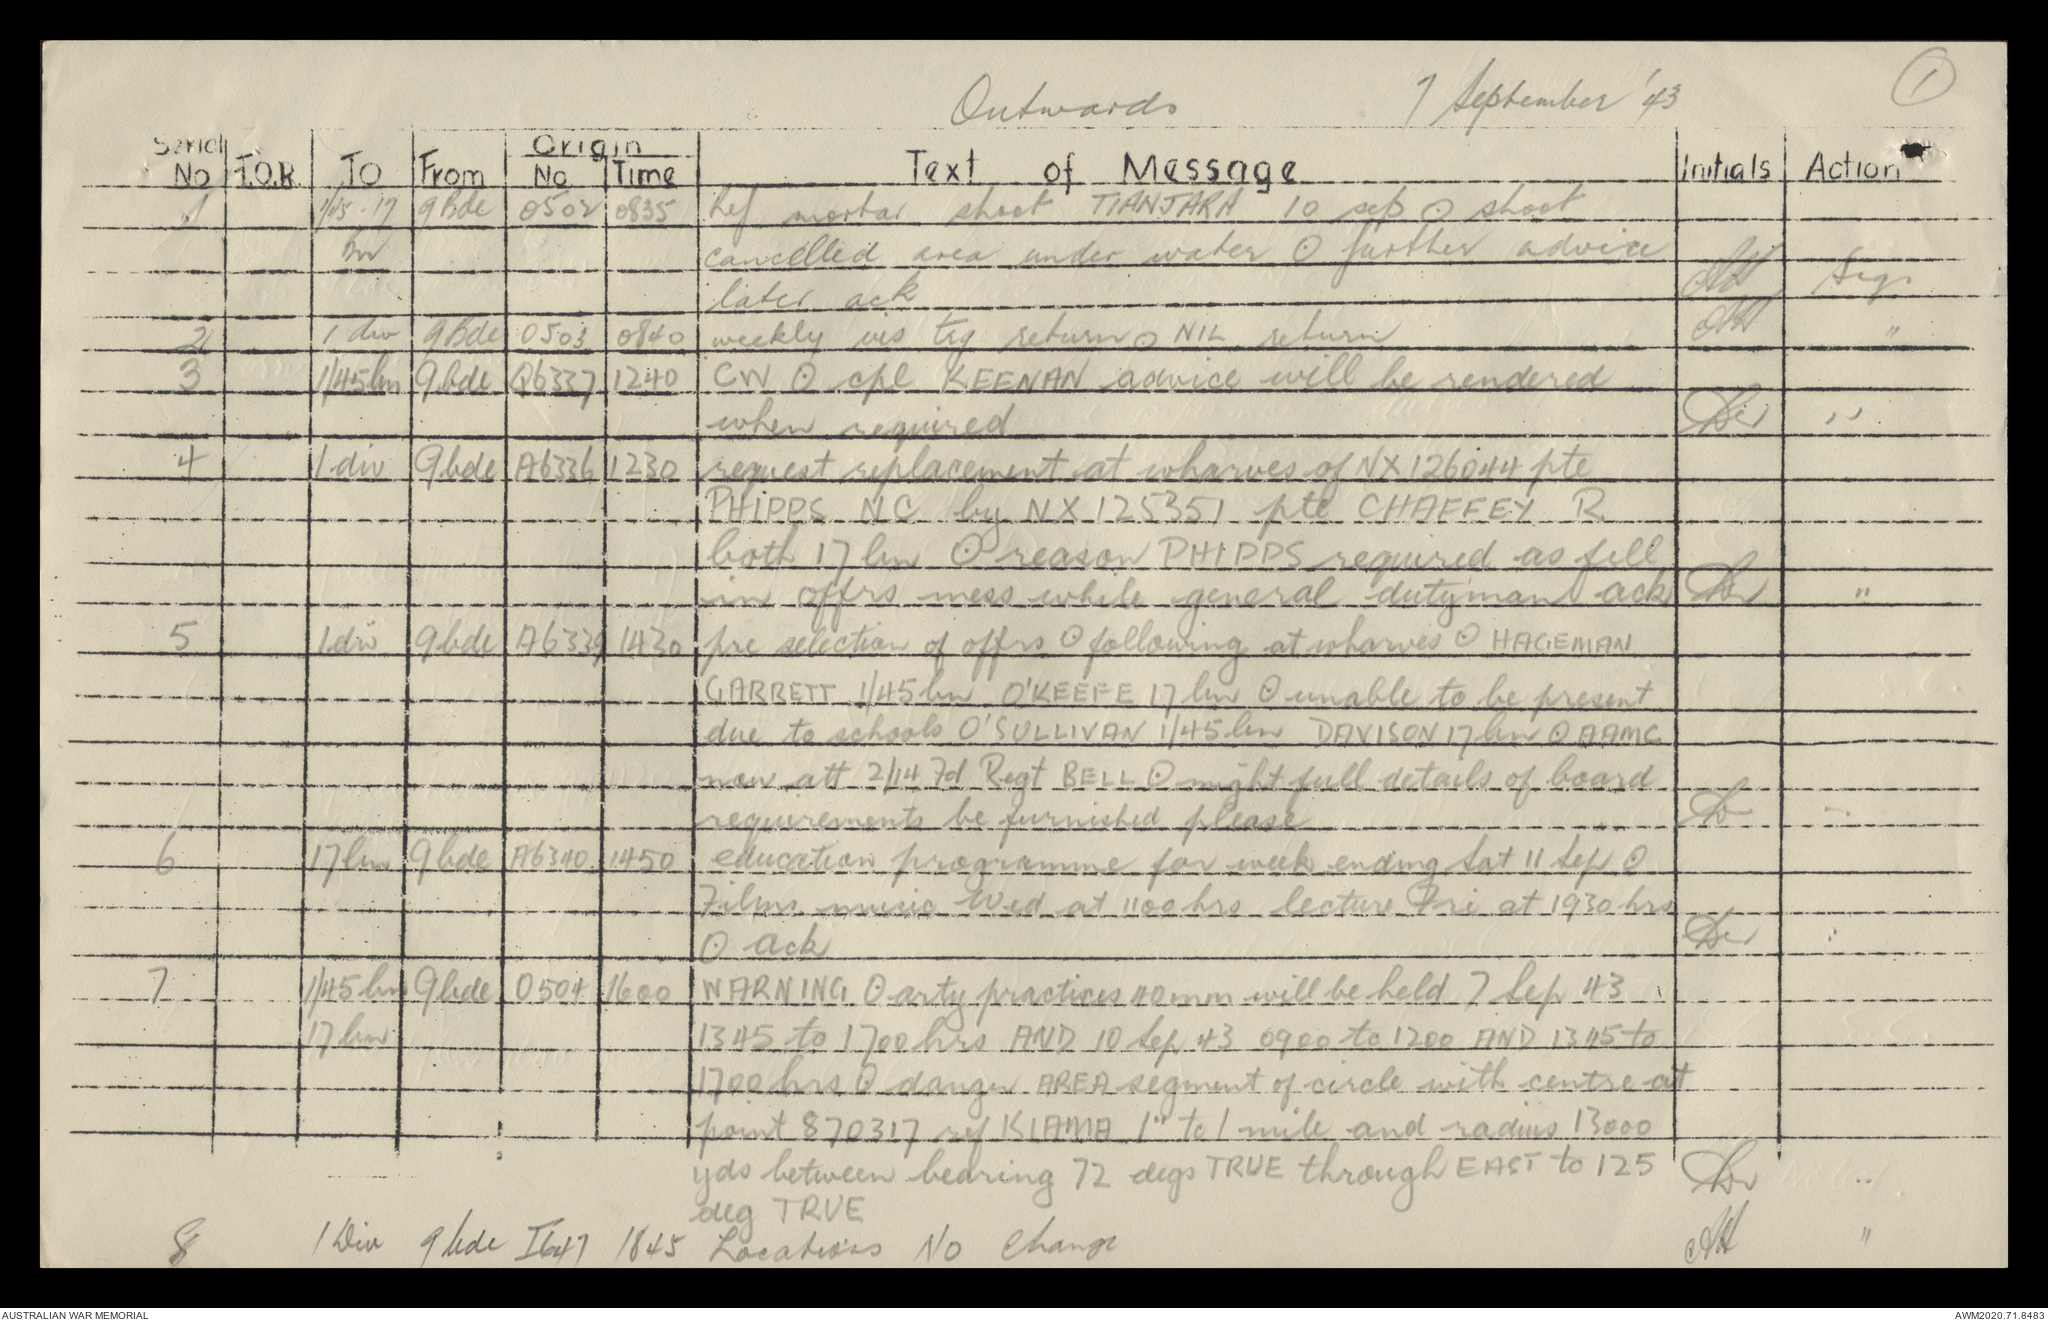 Outwards 7 September '43 1
Serial Origin
No T.O.R. TO From No Time Text of Message Initials Action
1 1/45-17 9 Bde O502 0835 Ref mortar shoot TIANJARA 10 sep ⊙ shoot
bn cancelled area under water ⊙ further advice
later ack Sigs
2 1 div 9 Bde O503 0840 weekly trg return ⊙ NIL return "
3 1/45 bn 9 bde Q6337 1240 CW ⊙ cpl KEENAN advice will be rendered
when required "
4 1 div 9 bde A6336 1230 request replacement at wharves of NX126044 pte
PHIPPS NC by NX 125351 pte CHAFFEY R
both 17 bn ⊙ reason PHIPPS required as fill
in offrs mess while general dutyman ack "
5 1 div 9 bde A6339 1430 pre selection of offrs ⊙ following at wharves ⊙ HAGEMAN
GARRETT 1/45 bn O'KEEFE 17 bn ⊙ unable to be present
due to schools O'SULLIVAN 1/45 bn DAVISON 17 bn ⊙ AAMC
now att 2/14 Fd Regt BELL ⊙ might full details of board
requirements be furnished please "
6 17 bn 9 bde A6340 1450 education programme for week ending Sat 11 Sep ⊙
Films music Wed at 1100 hrs lecture Fri at 1930 hrs
⊙ ack "
7 1/45 bn 9 bde O504 1600 WARNING ⊙ arty practices 40mm will be held 7 Sep 43
17 bn 1345 to 1700 hrs AND 10 Sep 43 0900 to 1200 AND 1345 to
1700 hrs ⊙ danger AREA segment of circle with centre at
point 870317 ref KIAMA 1" to 1 mile and radius 13000
yds between bearing 72 degs TRUE through EAST to 125 "
deg TRUE
8 1 Div 9 bde I647 1845 Locations No Change "
AUSTRALIAN WAR MEMORIAL AWM2020.71.8483